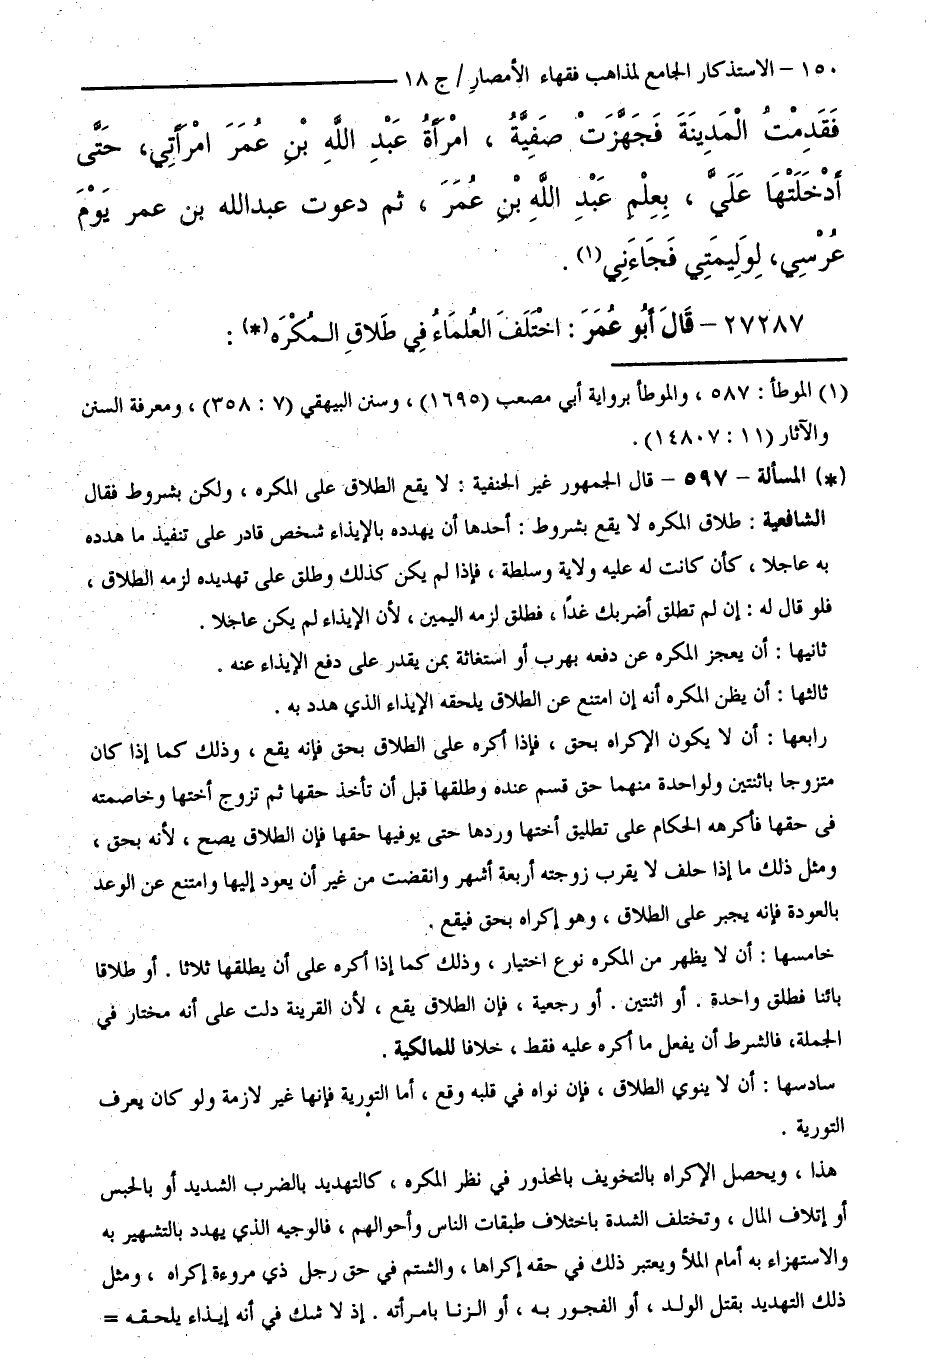 ١٥٠ – الاستذكار الجامع لمذاهب فقهاء الأمصار / ج ١٨
فَقَدِمْتُ الْمَدِينَةَ فَجَهَّزَتْ صَفِيَّةُ ، امْرَأَةُ عَبْدِ اللَّهِ بْنِ عُمَرَ امْرَأَتِي، حَتَّى
أَدْخَلَتْهَا عَلَيَّ ، بِعِلْمِ عَبْدِ اللَّهِ بْنِ عُمَرَ ، ثم دعوت عبدالله بن عمر يَوْمَ
عُرْسِي، لِوَلِيمَتِي فَجَاءَنِي(١) .
٢٧٢٨٧ – قَالَ أَبُو عُمَرَ : اخْتَلَفَ العُلمَاءُ فِي طَلَاقِ المُكْرَه(*) :
(١) الموطأ : ٥٨٧ ، والموطأ برواية أبي مصعب (١٦٩٥) ، وسنن البيهقي (٧ : ٣٥٨) ، ومعرفة السنن
والآثار (١١ : ١٤٨٠٧) .
(*) المسألة – ٥٩٧ – قال الجمهور غير الحنفية : لا يقع الطلاق على المكره ، ولكن بشروط فقال
الشافعية : طلاق المكره لا يقع بشروط : أحدها أن يهدده بالإيذاء شخص قادر على تنفيذ ما هدده
به عاجلا ، كأن كانت له عليه ولاية وسلطة ، فإذا لم يكن كذلك وطلق على تهديده لزمه الطلاق ،
فلو قال له : إن لم تطلق أضربك غدًا ، فطلق لزمه اليمين ، لأن الإيذاء لم يكن عاجلا .
ثانيها : أن يعجز المكره عن دفعه بهرب أو استغاثة بمن يقدر على دفع الإيذاء عنه .
ثالثها : أن يظن المكره أنه إن امتنع عن الطلاق يلحقه الإيذاء الذي هدد به .
رابعها : أن لا يكون الإكراه بحق ، فإذا أكره على الطلاق بحق فإنه يقع ، وذلك كما إذا كان
متزوجا باثنتين ولواحدة منهما حق قسم عنده وطلقها قبل أن تأخذ حقها ثم تزوج أختها وخاصمته
فى حقها فأكرهه الحكام على تطليق أختها وردها حتى يوفيها حقها فإن الطلاق يصح ، لأنه بحق ،
ومثل ذلك ما إذا حلف لا يقرب زوجته أربعة أشهر وانقضت من غير أن يعود إليها وامتنع عن الوعد
بالعودة فإنه يجبر على الطلاق ، وهو إكراه بحق فيقع .
خامسها : أن لا يظهر من المكره نوع اختيار ، وذلك كما إذا أكره على أن يطلقها ثلاثا . أو طلاقا
بائنا فطلق واحدة . أو اثنتين . أو رجعية ، فإن الطلاق يقع ، لأن القرينة دلت على أنه مختار في
الجملة، فالشرط أن يفعل ما أكره عليه فقط ، خلافا للمالكية .
سادسها : أن لا ينوي الطلاق ، فإن نواه في قلبه وقع ، أما التورية فإنها غير لازمة ولو كان يعرف
التورية .
هذا ، ويحصل الإكراه بالتخويف بالمحذور في نظر المكره ، كالتهديد بالضرب الشديد أو بالحبس
أو إتلاف المال ، وتختلف الشدة باختلاف طبقات الناس وأحوالهم ، فالوجيه الذي يهدد بالتشهير به
والاستهزاء به أمام الملأ ويعتبر ذلك في حقه إكراها ، والشتم في حق رجل ذي مروءة إكراه ، ومثل
ذلك التهديد بقتل الولد ، أو الفجور به ، أو الزنا بامرأته . إذ لا شك في أنه إيذاء يلحقه =